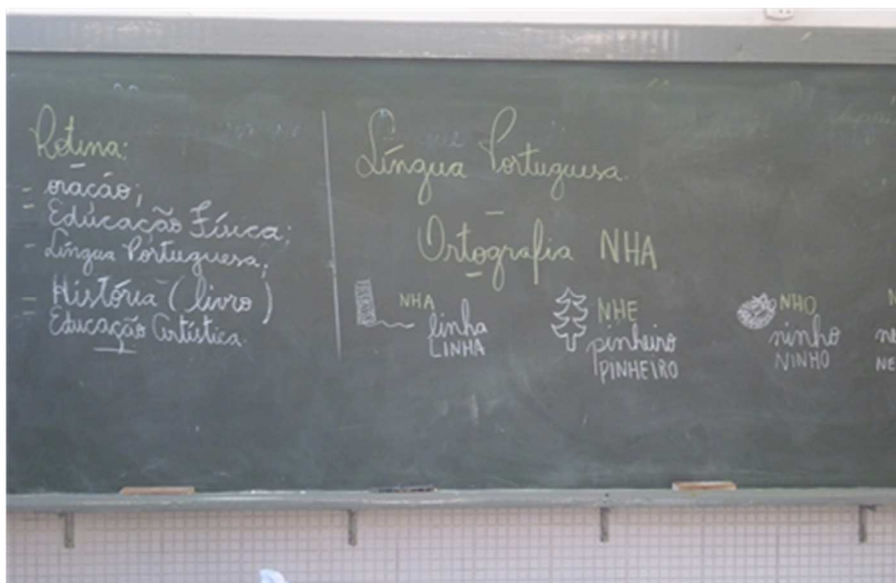 Rotina:
- oração;
- Educação Física;
- Língua Portuguesa;
- História (livro)
Educação Artística
Língua Portuguesa
Ortografia NHA
NHA
linha
LINHA
NHE
pinheiro
PINHEIRO
NHO
ninho
NINHO